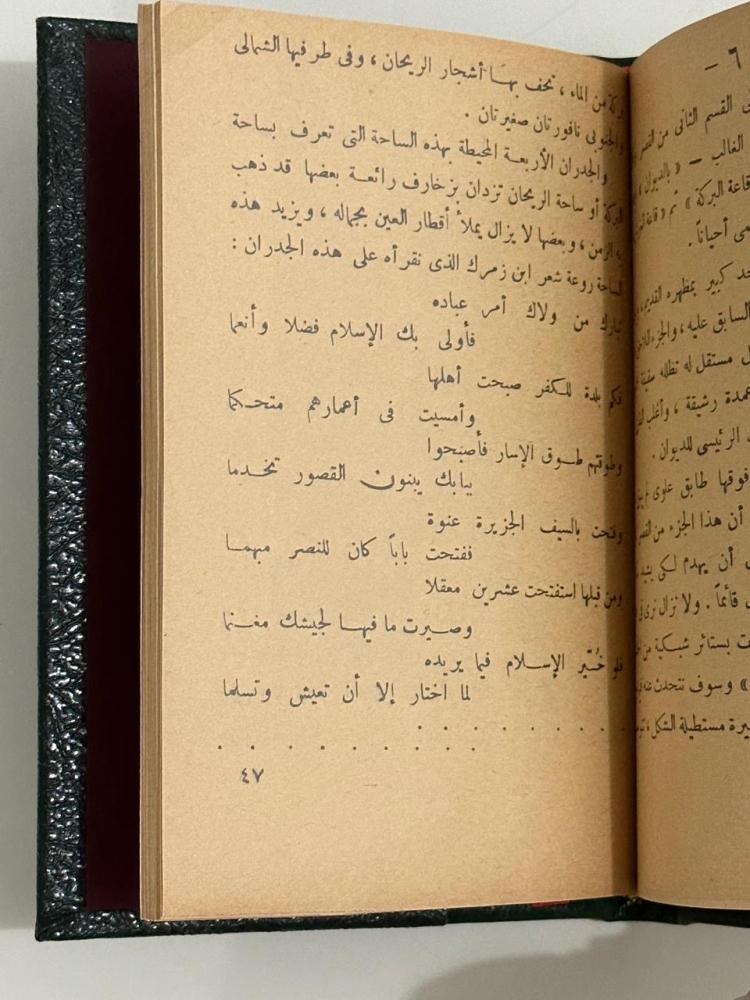 بركة من الماء ، تحف بها أشجار الريحان ، وفى طرفيها الشمالى
والجنوبى نافورتان صغيرتان .
والجدران الأربعة المحيطة بهذه الساحة التى تعرف بساحة
البركة أو ساحة الريحان تزدان بزخارف رائعة بعضها قد ذهب
به الزمن ، وبعضها لا يزال يملأ أقطار العين بجماله ، ويزيد هذه
الساحة روعة شعر ابن زمرك الذى نقرأه على هذه الجدران :
تبارك من ولاك أمر عباده
فأولى بك الإسلام فضلا وأنعما
فكم بلدة للكفر صبحت أهلها
وأمسيت فى أعمارهم متحكما
وطوقتهم طوق الإسار فأصبحوا
ببابك يبنون القصور تخدما
وفتحت بالسيف الجزيرة عنوة
ففتحت باباً كان للنصر مبهما
ومن قبلها استفتحت عشرين معقلا
وصيرت ما فيها لجيشك مغنما
فلو خُيّر الإسلام فيما يريده
لما اختار إلا أن تعيش وتسلما
. . . . . . . .
. . . . . . . .
٤٧
٦ –
القسم الثانى من القصر
الغالب – « بالديوان »
قاعة البركة » ثم « قاعة
أحياناً .
كبير بمظهره القديم
السابق عليه ، والجزء
مستقل له تظله سقيفة
أعمدة رشيقة ، وأغلب
الرئيسى للديوان .
فوقها طابق علوى لم
أن هذا الجزء من القصر
أن يهدم لكى
قائماً . ولا نزال نرى
بستائر شبكية من
» وسوف نتحدث عنه
مستطيلة الشكل ،